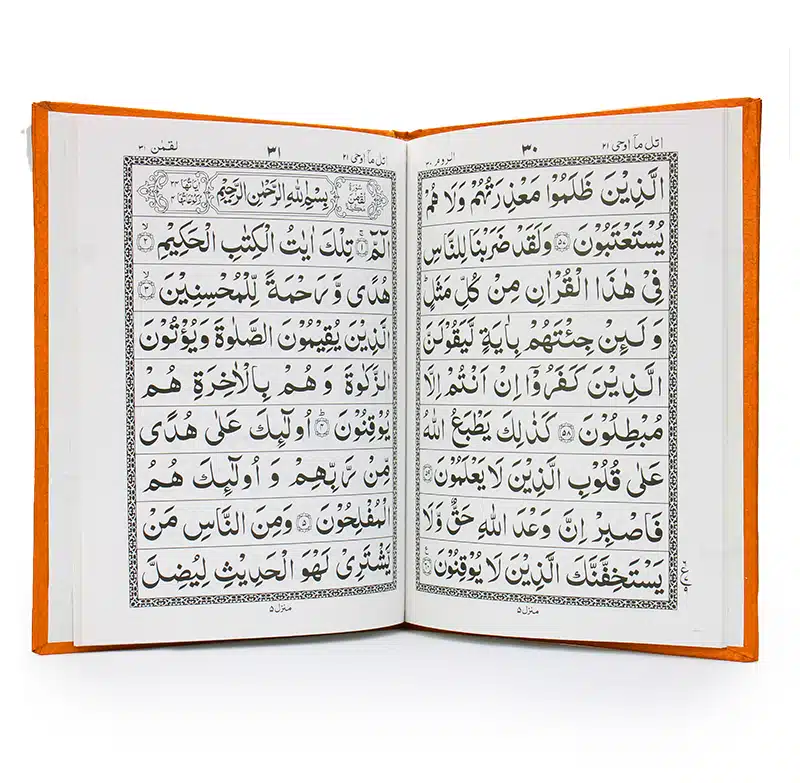 اتل مآ اوحی ۲۱ ۳۰ الروم ۳۰
الَّذِيْنَ ظَلَمُوْا مَعْذِرَتُهُمْ وَلَا هُمْ
يُسْتَعْتَبُوْنَ ۝۵۷ وَلَقَدْ ضَرَبْنَا لِلنَّاسِ
فِيْ هٰذَا الْقُرْاٰنِ مِنْ كُلِّ مَثَلٍ ؕ
وَ لَىِٕنْ جِئْتَهُمْ بِاٰيَةٍ لَّيَقُوْلَنَّ
الَّذِيْنَ كَفَرُوْۤا اِنْ اَنْتُمْ اِلَّا
مُبْطِلُوْنَ ۝۵۸ كَذٰلِكَ يَطْبَعُ اللّٰهُ
عَلٰى قُلُوْبِ الَّذِيْنَ لَا يَعْلَمُوْنَ ۝۵۹
فَاصْبِرْ اِنَّ وَعْدَ اللّٰهِ حَقٌّ وَّلَا
يَسْتَخِفَّنَّكَ الَّذِيْنَ لَا يُوْقِنُوْنَ ۝۶۰
منزل ۵
اتل مآ اوحی ۲۱ ۳۱ لقمٰن ۳۱
سُوْرَةُ لُقْمٰنَ مَكِّيَّةٌ بِسْمِ اللّٰهِ الرَّحْمٰنِ الرَّحِيْمِ اٰيَاتُهَا ۳۴ رُكُوْعَاتُهَا ۴
الٓمّٓ ۝۱ تِلْكَ اٰيٰتُ الْكِتٰبِ الْحَكِيْمِ ۝۲
هُدًى وَّ رَحْمَةً لِّلْمُحْسِنِيْنَ ۝۳
الَّذِيْنَ يُقِيْمُوْنَ الصَّلٰوةَ وَيُؤْتُوْنَ
الزَّكٰوةَ وَ هُمْ بِالْاٰخِرَةِ هُمْ
يُوْقِنُوْنَ ۝۴ اُولٰٓىِٕكَ عَلٰى هُدًى
مِّنْ رَّبِّهِمْ وَ اُولٰٓىِٕكَ هُمُ
الْمُفْلِحُوْنَ ۝۵ وَمِنَ النَّاسِ مَنْ
يَّشْتَرِيْ لَهْوَ الْحَدِيْثِ لِيُضِلَّ
منزل ۵